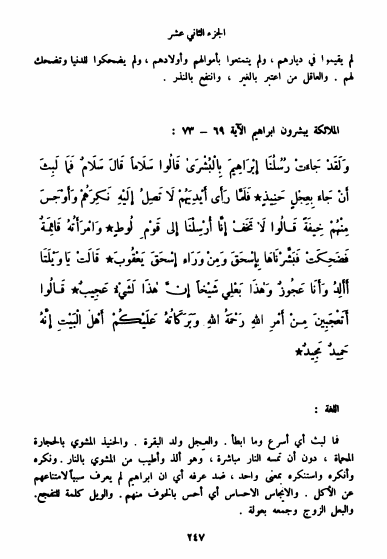 الجزء الثاني عشر
لم يقيموا في ديارهم ، ولم يتمتعوا بأموالهم وأولادهم ، ولم يضحكوا للدنيا وتضحك
لهم . والعاقل من اعتبر بالغير ، وانتفع بالنذر .
الملائكة يبشرون ابراهيم الآية ٦٩ – ٧٣ :
وَلَقَدْ جَاءَتْ رُسُلُنَا إِبْرَاهِيمَ بِالْبُشْرَىٰ قَالُوا سَلَاماً قَالَ سَلَامٌ فَمَا لَبِثَ
أَنْ جَاءَ بِعِجْلٍ حَنِيذٍ* فَلَمَّا رَأَى أَيْدِيَهُمْ لَا تَصِلُ إِلَيْهِ نَكِرَهُمْ وَأَوْجَسَ
مِنْهُمْ خِيفَةً قَالُوا لَا تَخَفْ إِنَّا أُرْسِلْنَا إِلَى قَوْمِ لُوطٍ* وَامْرَأَتُهُ قَائِمَةٌ
فَضَحِكَتْ فَبَشَّرْنَاهَا بِإِسْحٰقَ وَمِنْ وَرَاءِ إِسْحٰقَ يَعْقُوبَ* قَالَتْ يَا وَيْلَتَا
أَأَلِدُ وَأَنَا عَجُوزٌ وَهٰذَا بَعْلِي شَيْخاً إِنَّ هٰذَا لَشَيْءٌ عَجِيبٌ* قَالُوا
أَتَعْجَبِينَ مِنْ أَمْرِ اللهِ رَحْمَةُ اللهِ وَبَرَكَاتُهُ عَلَيْكُمْ أَهْلَ الْبَيْتِ إِنَّهُ
حَمِيدٌ مَجِيدٌ*
اللغة :
فما لبث أي أسرع وما ابطأ . والعجل ولد البقرة . والحنيذ المشوي بالحجارة
المحماة ، دون أن تمسه النار مباشرة ، وهو ألذ وأطيب من المشوي بالنار . ونكره
وأنكره واستنكره بمعنى واحد ، ضد عرفه أي ان ابراهيم لم يعرف سبباً لامتناعهم
عن الأكل . والايجاس الاحساس أي أحس بالخوف منهم . والويل كلمة للتفجع .
والبعل الزوج وجمعه بعولة .
٢٤٧